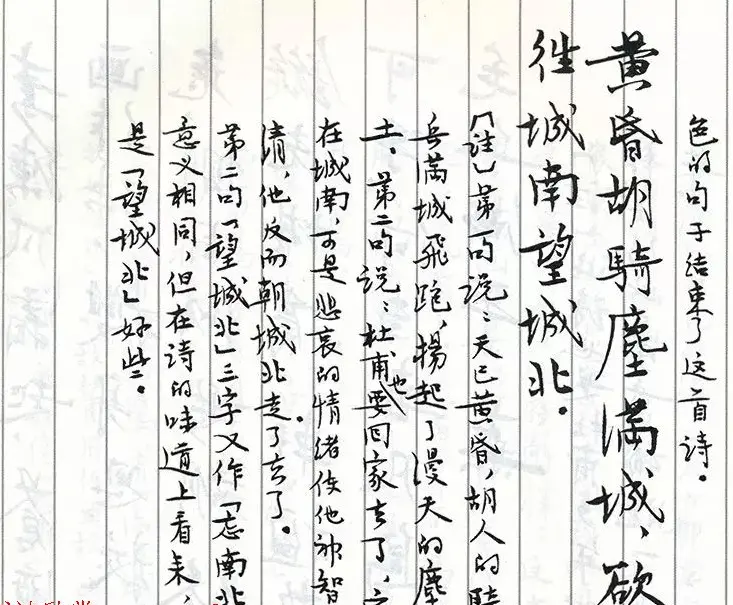 色的句子结束了这首诗。
黄昏胡騎塵满城，欲
往城南望城北。
〔註〕第一句说：天已黄昏，胡人的騎
兵满城飛跑，揚起了漫天的塵
土。第二句说：杜甫也要回家去了，
在城南，可是悲哀的情绪使他神智
清，他反而朝城北走了去了。
第二句「望城北」三字又作「忘南北
意义相同，但在诗的味道上看来，
是「望城北」好些。